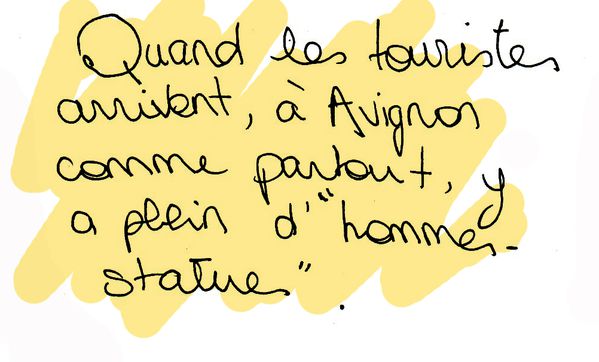 Quand les touristes
arrivent, à Avignon
comme partout, y
a plein d'"hommes-
statues".